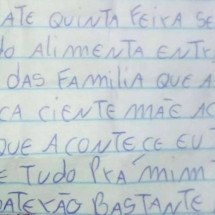 ATE QUINTA FEIRA SE
DO ALIMENTA ENTR
DAS FAMILIA QUE A
CA CIENTE MÃE AC
QUE ACONTECE EU
E TUDO PRÁ MIM
BATERÃO BASTANTE